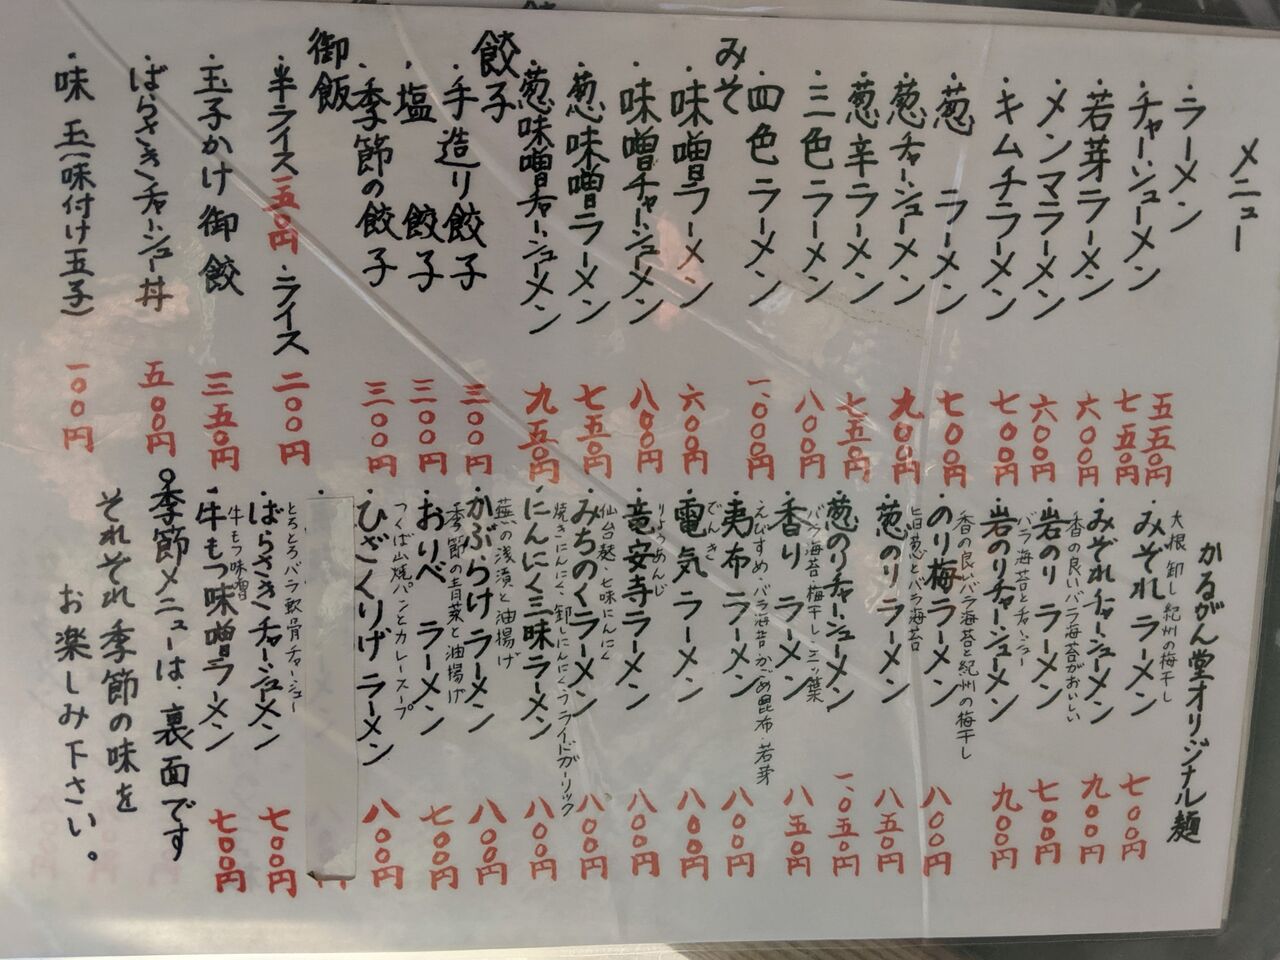 メニュー
・ラーメン 五五〇円
・チャーシューメン 七五〇円
・若芽ラーメン 六〇〇円
・メンマラーメン 六〇〇円
・キムチラーメン 七〇〇円
・葱 ラーメン 七〇〇円
・葱チャーシューメン 九〇〇円
・葱辛ラーメン 七五〇円
・三色ラーメン 八〇〇円
・四色ラーメン 一、〇〇〇円
みそ
・味噌ラーメン 六〇〇円
・味噌チャーシューメン 八〇〇円
・葱味噌ラーメン 七五〇円
・葱味噌チャーシューメン 九五〇円
餃子
・手造り餃子 三〇〇円
・塩 餃子 三〇〇円
・季節の餃子 三〇〇円
御飯
・半ライス 一五〇円 ・ライス 二〇〇円
・玉子かけ御餃 三五〇円
・ばらさきチャーシュー丼 五〇〇円
・味 玉(味付け玉子) 一〇〇円
かるがん堂オリジナル麺
大根 卸し 紀州の梅干し
・みぞれ ラーメン 七〇〇円
・みぞれチャーシューメン 九〇〇円
香の良いバラ海苔がおいしい
・岩のり ラーメン 七〇〇円
バラ海苔とチャーシュー
・岩のりチャーシューメン 九〇〇円
香の良いバラ海苔と紀州の梅干し
・のり梅ラーメン 八〇〇円
白葱とバラ海苔
・葱のりラーメン 八五〇円
・葱のりチャーシューメン 一、〇五〇円
バラ海苔・梅干し・三ッ葉
・香り ラーメン 八五〇円
えびすめ バラ海苔 かごめ昆布・若芽
・夷布ラーメン 八〇〇円
でんき
・電気 ラーメン 八〇〇円
りょうあんじ
・竜安寺ラーメン 八〇〇円
仙台麩・七味にんにく
・みちのくラーメン 八〇〇円
焼きにんにく、卸しにんにく、フライドガーリック
・にんにく三味ラーメン 八〇〇円
蕪の浅漬と油揚げ
・かぶらけラーメン 八〇〇円
季節の青菜と油揚げ
・おりべ ラーメン 七〇〇円
つくば山焼パンとカレースープ
・ひざくりげラーメン 八〇〇円
とろとろバラ軟骨チャーシュー
・ばらさきチャーシューメン 七〇〇円
牛もつ味噌
・牛もつ味噌ラーメン 七〇〇円
○季節メニューは、裏面です
それぞれ季節の味を
お楽しみ下さい。